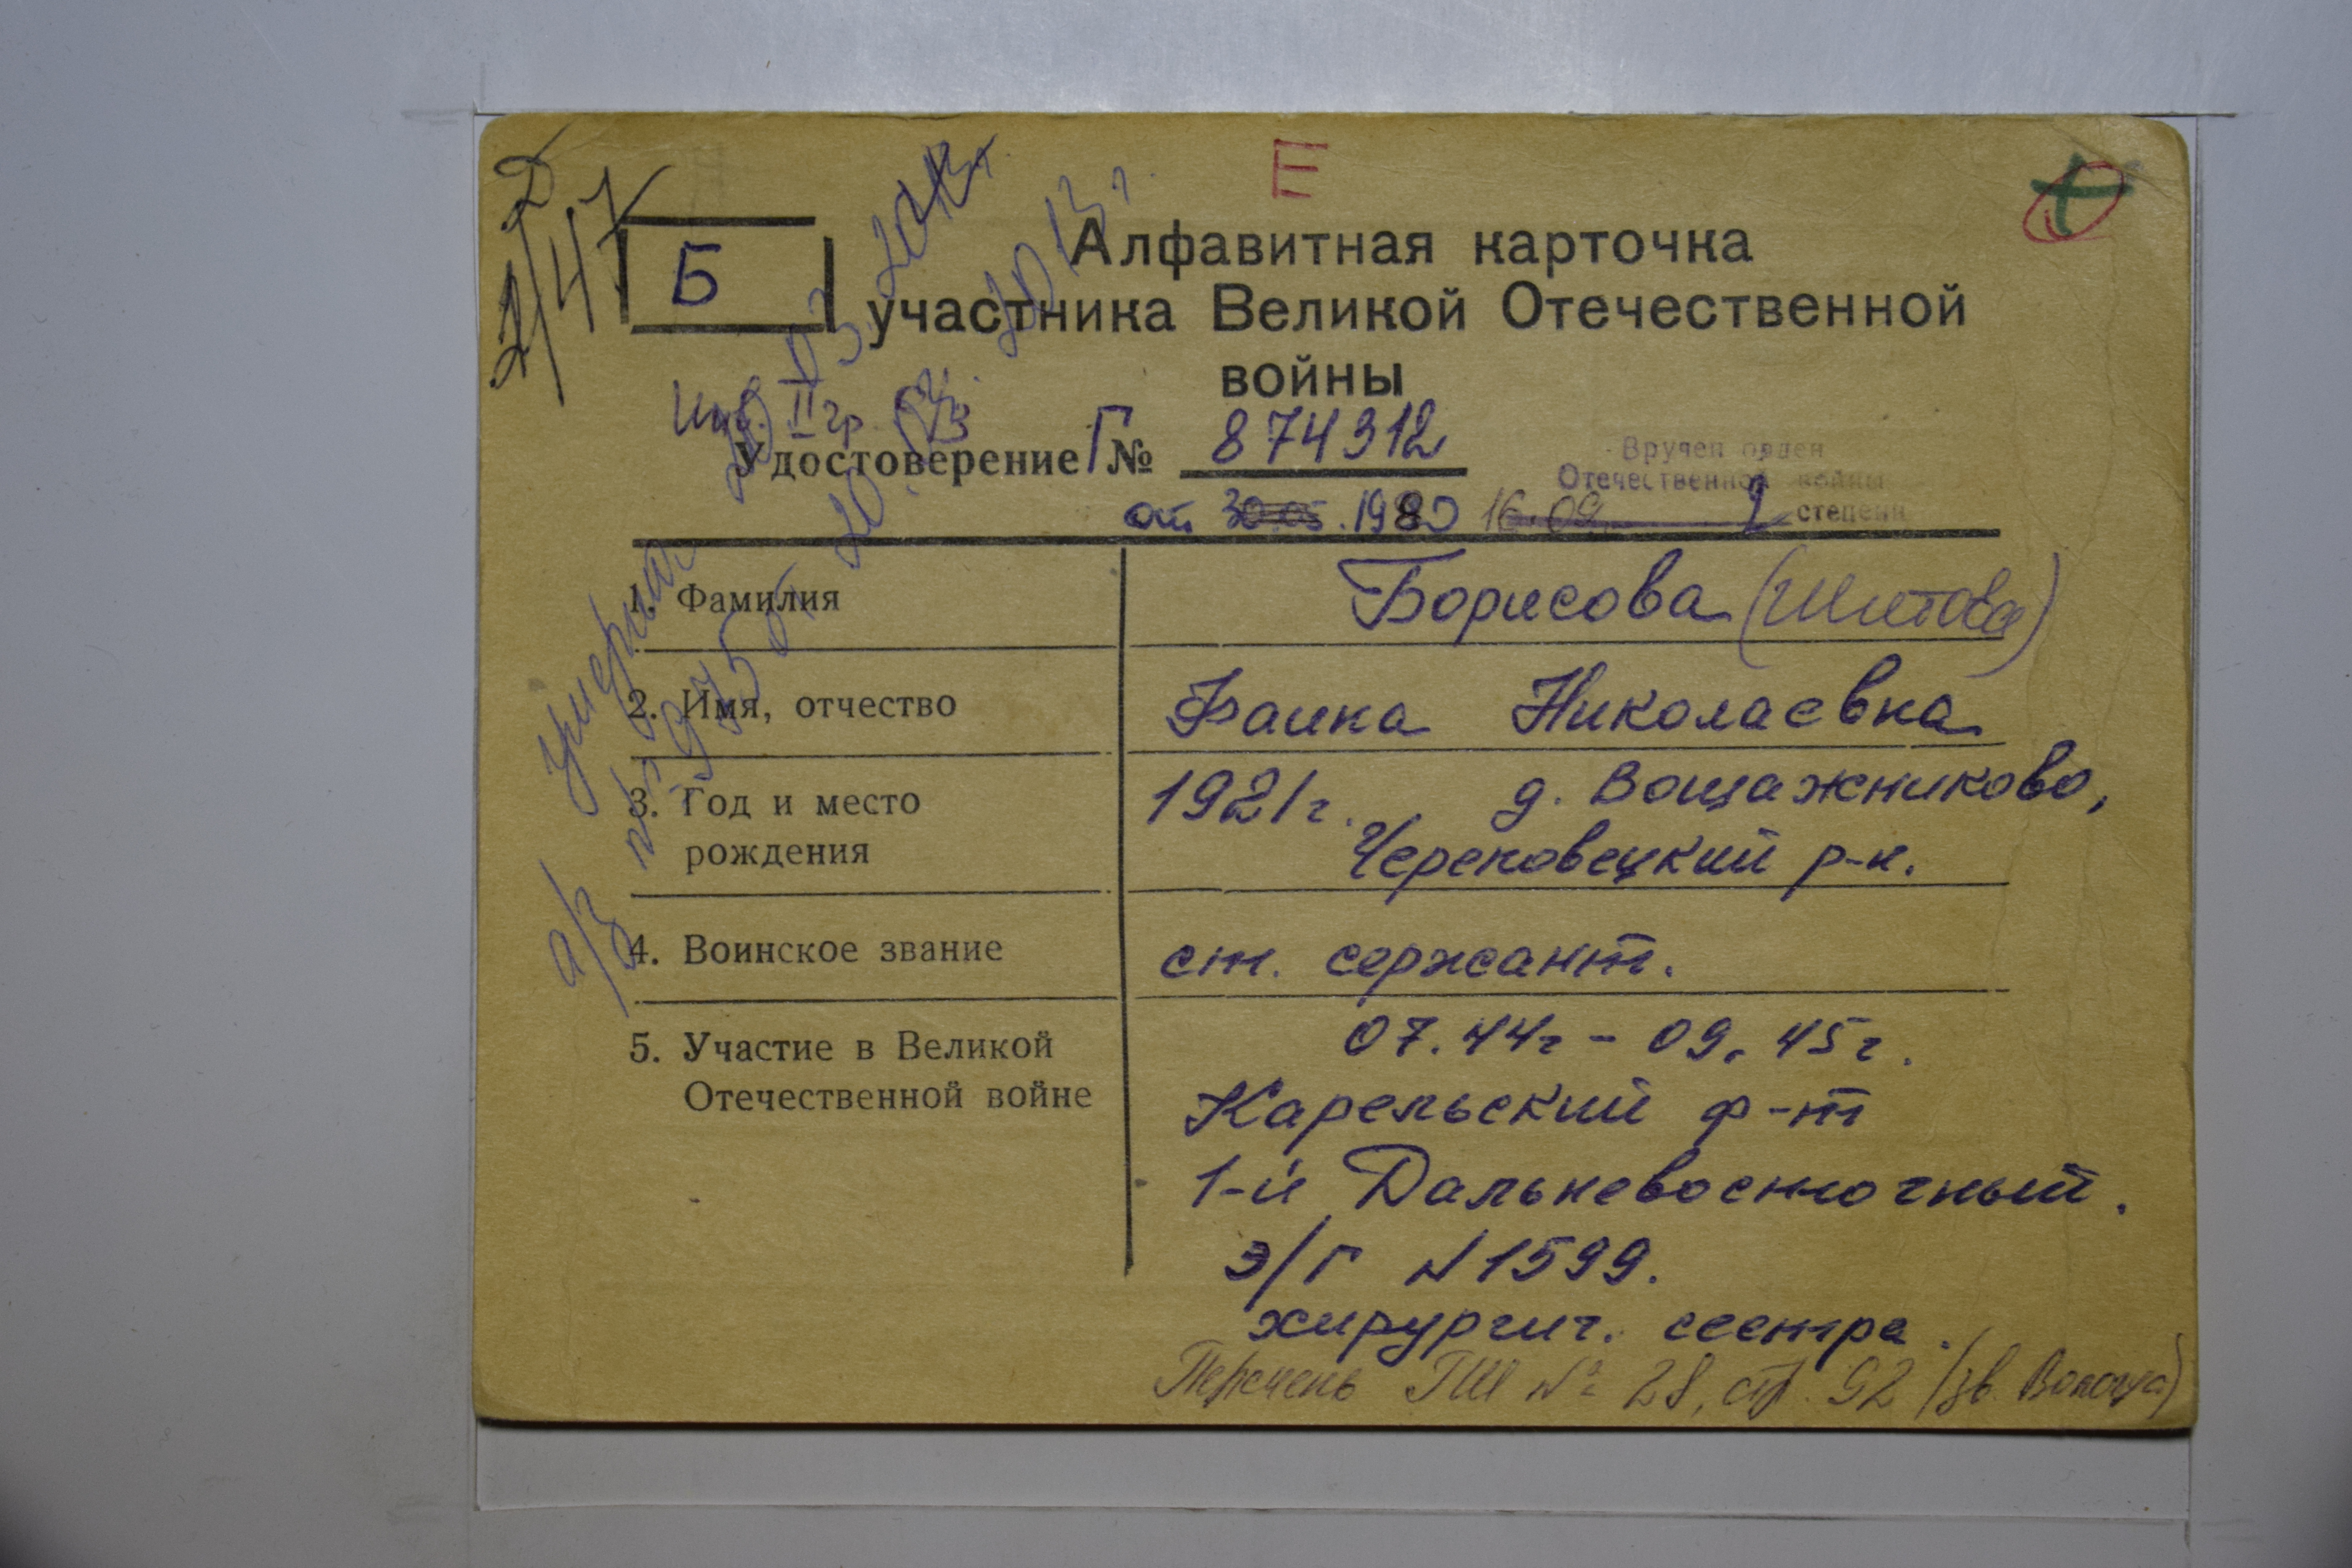 Е
2/47
Б
Алфавитная карточка
участника Великой Отечественной
войны
инв. II гр.
Удостоверение Г № 874312
Вручен орден
Отечественной войны
2 степени
от 30.05.1980 16.09.
1. Фамилия Борисова (Шитова)
2. Имя, отчество Фаина Николаевна
3. Год и место рождения 1921г. д. Вощажниково,
Череповецкий р-н.
4. Воинское звание ст. сержант.
5. Участие в Великой Отечественной войне 07.44г - 09.45г.
Карельский ф-т
1-й Дальневосточный.
э/г №1599.
хирургич. сестра.
Перечень ГШ № 28, стр. 92 (зв. Вологда)
умерла
а/з № 975 от 20.03.2013г.